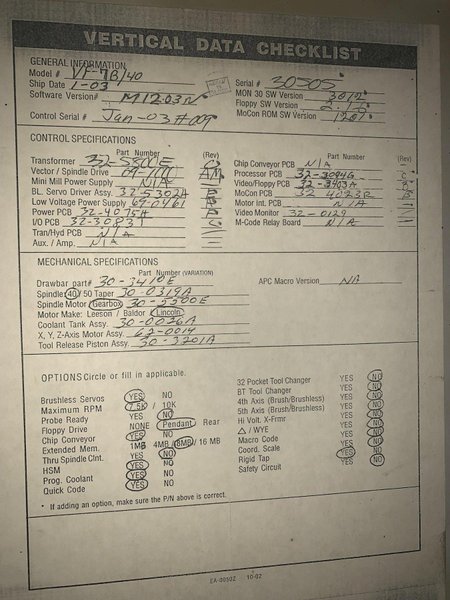 VERTICAL DATA CHECKLIST
GENERAL INFORMATION
Model # VF-7B/40
Ship Date 1-03
Software Version M12.03
Control Serial # Jan-03 #009
Serial # 30505
MON 30 SW Version
Floppy SW Version
MoCon ROM SW Version
CONTROL SPECIFICATIONS
Part Number (Rev)
Transformer 32-5800E
Vector / Spindle Drive
Mini Mill Power Supply N/A
BL. Servo Driver Assy. 32-5302A
Low Voltage Power Supply 69-0461
Power PCB 32-4075A
I/O PCB 32-3083
Tran/Hyd PCB N/A
Aux. / Amp. N/A
Part Number (Rev)
Chip Conveyor PCB N/A
Processor PCB 32-3094G
Video/Floppy PCB 32-3403A
MoCon PCB 32 4023R
Motor Int. PCB N/A
Video Monitor 32-0129
M-Code Relay Board N/A
MECHANICAL SPECIFICATIONS
Part Number (VARIATION)
Drawbar part# 30-3410E
Spindle 40 / 50 Taper 30-0319A
Spindle Motor Gearbox 30-5500E
Motor Make: Leeson / Baldor Lincoln
Coolant Tank Assy. 30-0026A
X, Y, Z-Axis Motor Assy. 62-0014
Tool Release Piston Assy. 30-3201A
APC Macro Version NA
OPTIONS Circle or fill in applicable.
Brushless Servos YES NO
Maximum RPM 7.5K / 10K
Probe Ready YES NO
Floppy Drive NONE Pendant Rear
Chip Conveyor YES NO
Extended Mem. 1MB 4MB / 8MB / 16 MB
Thru Spindle Clnt. YES NO
HSM YES NO
Prog. Coolant YES NO
Quick Code YES NO
32 Pocket Tool Changer YES NO
BT Tool Changer YES NO
4th Axis (Brush/Brushless) YES NO
5th Axis (Brush/Brushless) YES NO
Hi Volt. X-Frmr YES NO
△ / WYE YES NO
Macro Code YES NO
Coord. Scale YES NO
Rigid Tap YES NO
Safety Circuit YES NO
* If adding an option, make sure the P/N above is correct.
EA-0050Z 10-02